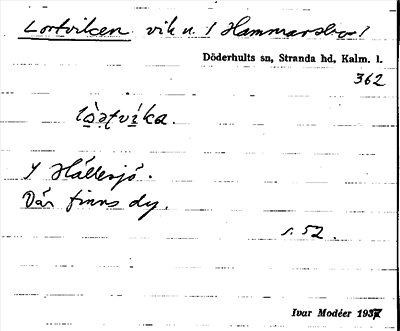 Lortviken vik n. I Hammarsebo I
Döderhults sn, Stranda hd, Kalm. l.
362
lò̤ətvi̤ka.
I Hällesjö.
Där finns dy.
s. 52.
Ivar Modéer 1937